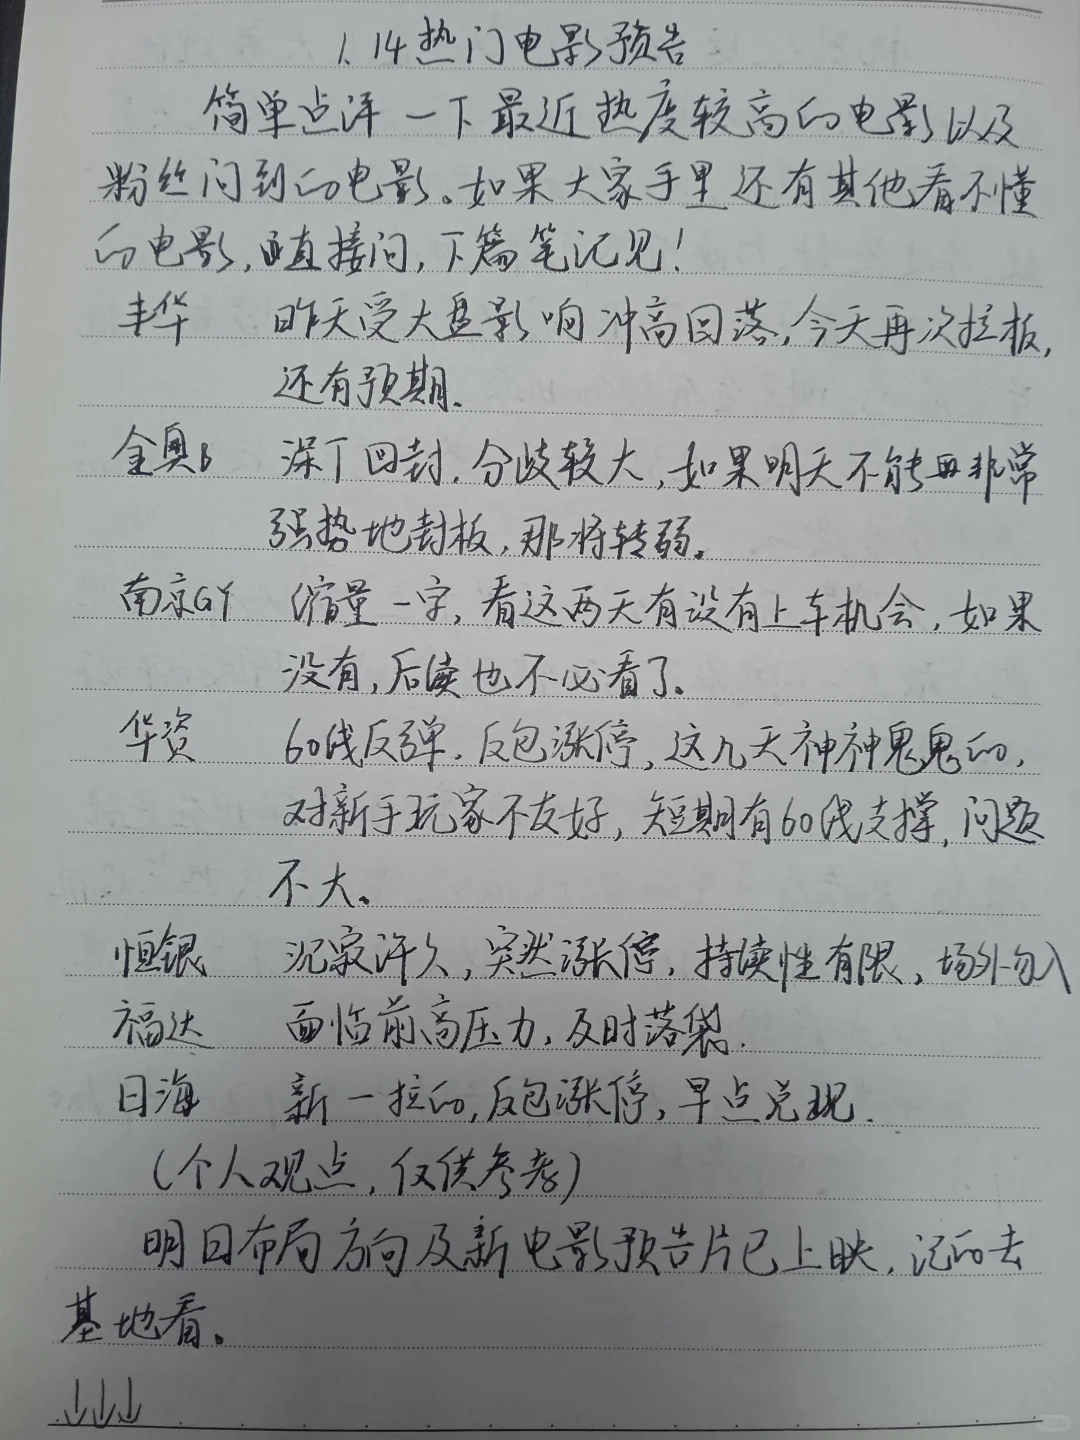 1.14热门电影预告
简单点评一下最近热度较高的电影以及
粉丝问到的电影。如果大家手里还有其他看不懂
的电影,直接问,下篇笔记见!
丰华 昨天受大盘影响冲高回落,今天再次拉板,
还有预期.
金奥B 深T回封,分歧较大,如果明天不能再非常
强势地封板,那将转弱。
南京GY 缩量一字,看这两天有没有上车机会,如果
没有,后续也不必看了。
华资 60线反弹,反包涨停,这几天神神鬼鬼的,
对新手玩家不友好,短期有60线支撑,问题
不大。
恒银 沉寂许久,突然涨停,持续性有限,场外勿入
福达 面临前高压力,及时落袋.
日海 新一拉的,反包涨停,早点兑现.
(个人观点,仅供参考)
明日布局方向及新电影预告片已上映,记的去
基地看。
↓↓↓